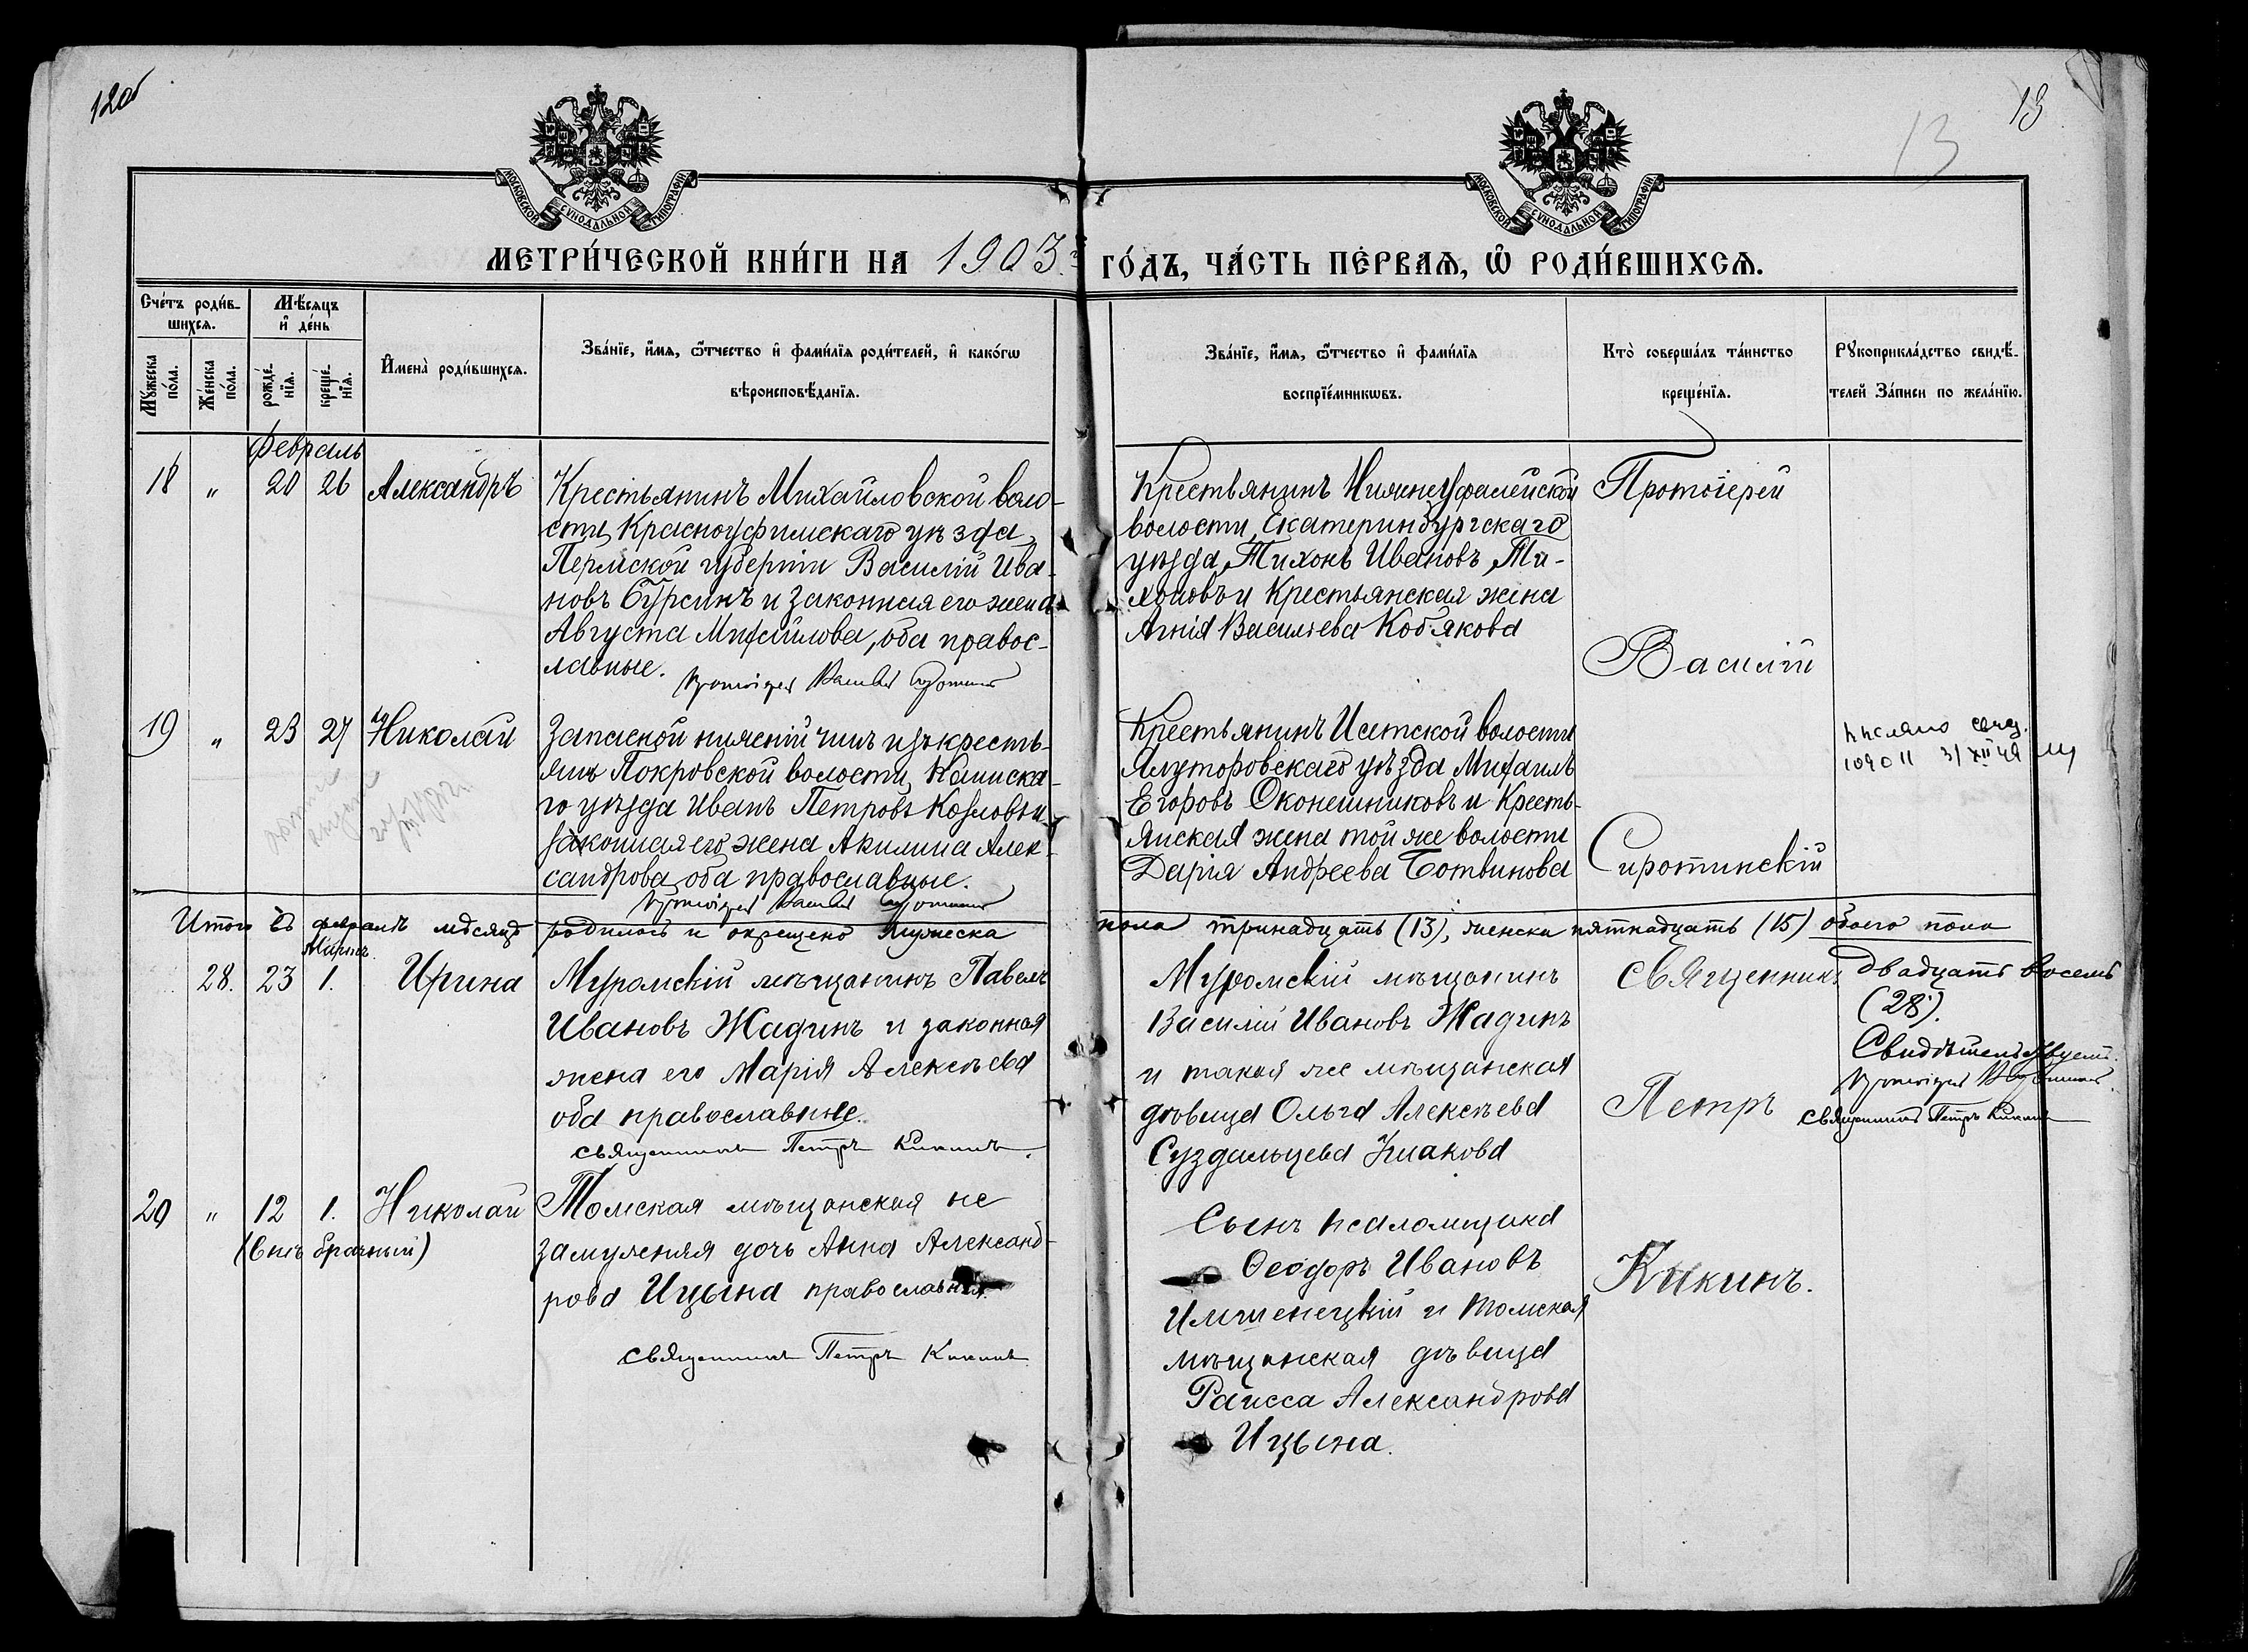 12об
13
13
МОСКОВСКОЙ СѴНОДАЛЬНОЙ ТИПОГРАФІИ
МОСКОВСКОЙ СѴНОДАЛЬНОЙ ТИПОГРАФІИ
МЕТРИ́ЧЕСКОЙ КНИ́ГИ НА 1903 г. ГО́ДЪ, ЧА́СТЬ ПЕ́РВАѦ, Ѡ РОДИ́ВШИХСѦ.
Сче́тъ роди́в-
шихсѧ.
Мꙋ́жеска по́ла.
Же́нска по́ла.
Мѣ́сѧцъ
и҆ де́нь
рожде́-
нїѧ.
креще́-
нїѧ.
И҆мена̀ роди́вшихсѧ.
Зва́нїе, и҆́мѧ, ѻ҆́тчество и҆ фами́лїѧ роди́телей, и҆ како́гѡ
вѣроисповѣ́данїѧ.
Зва́нїе, и҆́мѧ, ѻ҆́тчество и҆ фами́лїѧ
воспрїе́мникѡвъ.
Кто̀ соверша́лъ та́инство
креще́нїѧ.
Рꙋкоприкла́дство свидѣ́-
телей За́писи по жела́нїю.
Февраль
18 " 20 26 Александръ
Крестьянинъ Михайловской воло-
сти, Красноуфимскаго уѣзда,
Пермской губерніи Василій Ива-
новъ Бурсинъ и законная его жена
Августа Михайлова, оба правос-
лавные.
Протоіерей Василій Сиротинскій
Крестьянинъ Нижнеуфалейской
волости, Екатеринбургскаго
уѣзда, Тихонъ Ивановъ Ти-
хоновъ и Крестьянская жена
Агнія Васильева Кобякова
Протоіерей
Василій
Сиротинскій
19 " 23 27 Николай
Запасной нижній чинъ изъ кресть-
янъ Покровской волости, Каинска-
го уѣзда Иванъ Петровъ Козловъ и
законная его жена Акилина Алек-
сандрова, оба православные.
Протоіерей Василій Сиротинскій
Крестьянинъ Исетской волости
Ялуторовскаго уѣзда Михаилъ
Егоровъ Оконешниковъ и Кресть-
янская жена той же волости
Дарія Андреева Ботвинова
Итого въ февралѣ мѣсяцѣ родилось и окрещено мужеска
пола тринадцать (13), женска пятнадцать (15) обоего пола
двадцать восемь
(28).
Свидѣтельствуемъ.
Протоіерей В. Сиротинскій
священникъ Петръ Кикинъ
Мартъ
28. 23 1. Ирина
Муромскій мѣщанинъ Павелъ
Ивановъ Жадинъ и законная
жена его Марія Алексѣева
оба православные.
священникъ Петръ Кикинъ.
Муромскій мѣщанинъ
Василій Ивановъ Жадинъ
и такая же мѣщанская
дѣвица Ольга Алексѣева
Суздальцева
Священникъ
Петръ
Кикинъ.
20 " 12 1. Николай
(внѣ брачный)
Томская мѣщанская не
замужняя дочь Анна Александ-
рова Ицына православная.
священникъ Петръ Кикинъ
Сынъ псаломщика
Ѳеодоръ Ивановъ
Имшенецкій и томская
мѣщанская дѣвица
Раисса Александрова
Ицына.